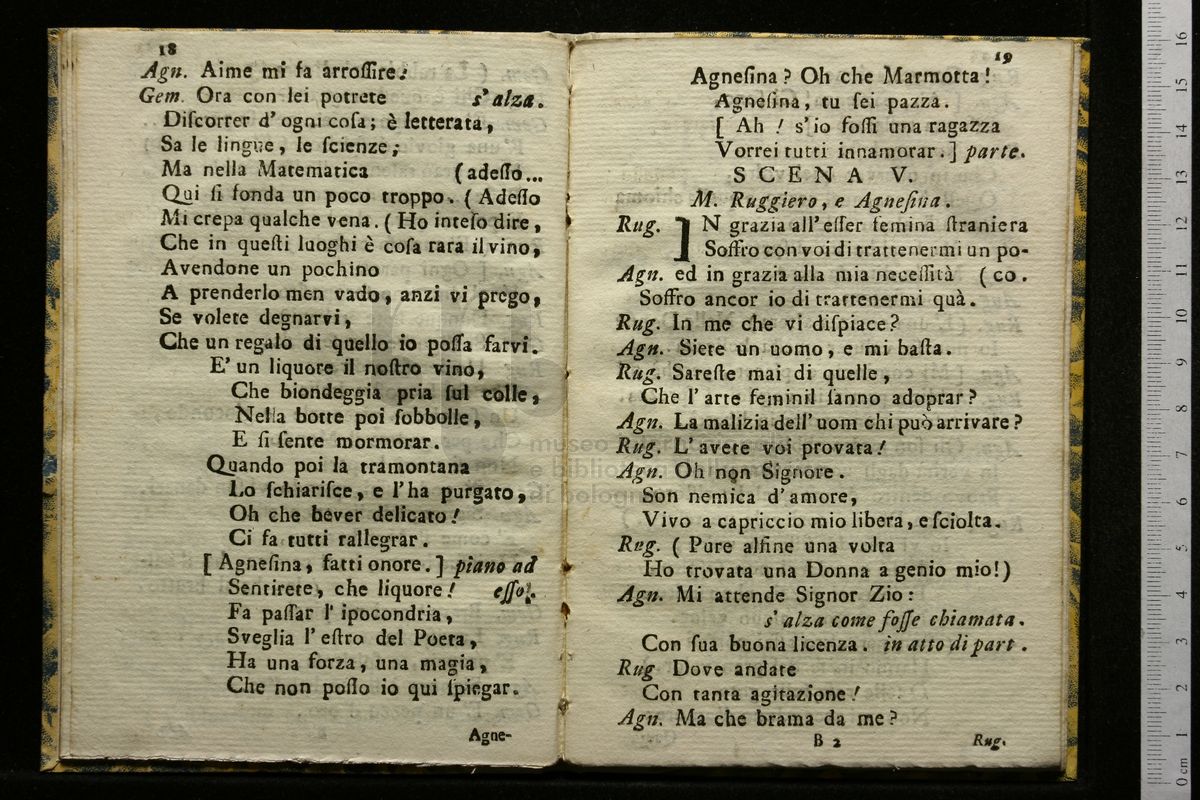 18
Agn. Aime mi fa arroſſire!
Gem. Ora con lei potrete s'alza.
Diſcorrer d'ogni coſa; è letterata,
Sa le lingue, le ſcienze;
Ma nella Matematica (adeſſo...
Qui ſi fonda un poco troppo. (Adeſſo
Mi crepa qualche vena. (Ho inteſo dire,
Che in queſti luoghi è coſa rara il vino,
Avendone un pochino
A prenderlo men vado, anzi vi prego,
Se volete degnarvi,
Che un regalo di quello io poſſa farvi.
E' un liquore il noſtro vino,
Che biondeggia pria ſul colle,
Nella botte poi ſobbolle,
E ſi ſente mormorar.
Quando poi la tramontana
Lo ſchiariſce, e l'ha purgato,
Oh che bever delicato!
Ci fa tutti rallegrar.
[ Agneſina, fatti onore. ] piano ad
Sentirete, che liquore! eſſo.
Fa paſſar l'ipocondria,
Sveglia l'eſtro del Poeta,
Ha una forza, una magia,
Che non poſſo io qui ſpiegar.
Agne-
19
Agneſina? Oh che Marmotta!
Agneſina, tu ſei pazza.
[ Ah! s'io foſſi una ragazza
Vorrei tutti innamorar. ] parte.
SCENA V.
M. Ruggiero, e Agneſina.
Rug. IN grazia all'eſſer femina ſtraniera
Soffro con voi di trattenermi un po-
Agn. ed in grazia alla mia neceſſità (co.
Soffro ancor io di trattenermi quà.
Rug. In me che vi diſpiace?
Agn. Siete un uomo, e mi baſta.
Rug. Sareſte mai di quelle,
Che l'arte feminil ſanno adoprar?
Agn. La malizia dell'uom chi può arrivare?
Rug. L'avete voi provata!
Agn. Oh non Signore.
Son nemica d'amore,
Vivo a capriccio mio libera, e ſciolta.
Rug. ( Pure alfine una volta
Ho trovata una Donna a genio mio!)
Agn. Mi attende Signor Zio:
s'alza come foſſe chiamata.
Con ſua buona licenza. in atto di part.
Rug Dove andate
Con tanta agitazione!
Agn. Ma che brama da me?
B 2 Rug.
museo
e biblio
di bologna
0 cm 1 2 3 4 5 6 7 8 9 10 11 12 13 14 15 16